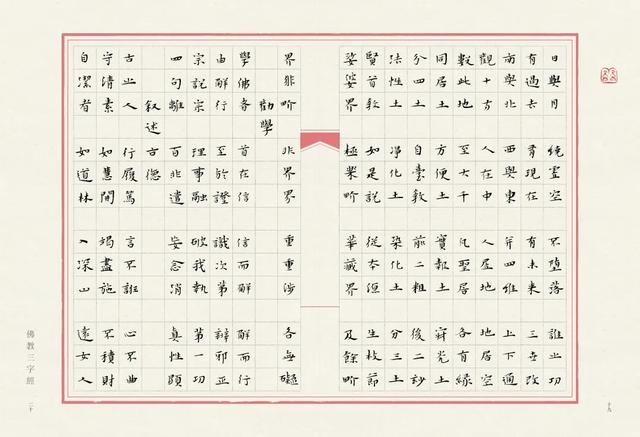 日與月 繞虛空 不墮落 誰之功
有過去 有現在 有未來 三世改
南與北 西與東 并四維 上下通
觀十方 人在中 人居地 地居空
數此地 至大千 凡聖居 各有緣
同居土 方便土 實報土 寂光土
分四土 自臺教 前二粗 後二妙
法性土 淨化土 染化土 分三土
賢首教 如是說 從本源 生枝節
娑婆界 極樂畍 華藏界 及餘畍
十九
界非畍 非非界 重重涉 各無礙
勸學
學佛者 首在信 信而解 解而行
由解行 至於證 識次第 辨邪正
宗說宗 理事融 破我執 第一功
四句離 百非遣 妄念消 真性顯
敘述古德
古之人 行履篤 言不誑 心不曲
守清素 如慧開 竭盡施 不積財
自潔者 如道林 入深山 遠女人
佛教三字經
二十